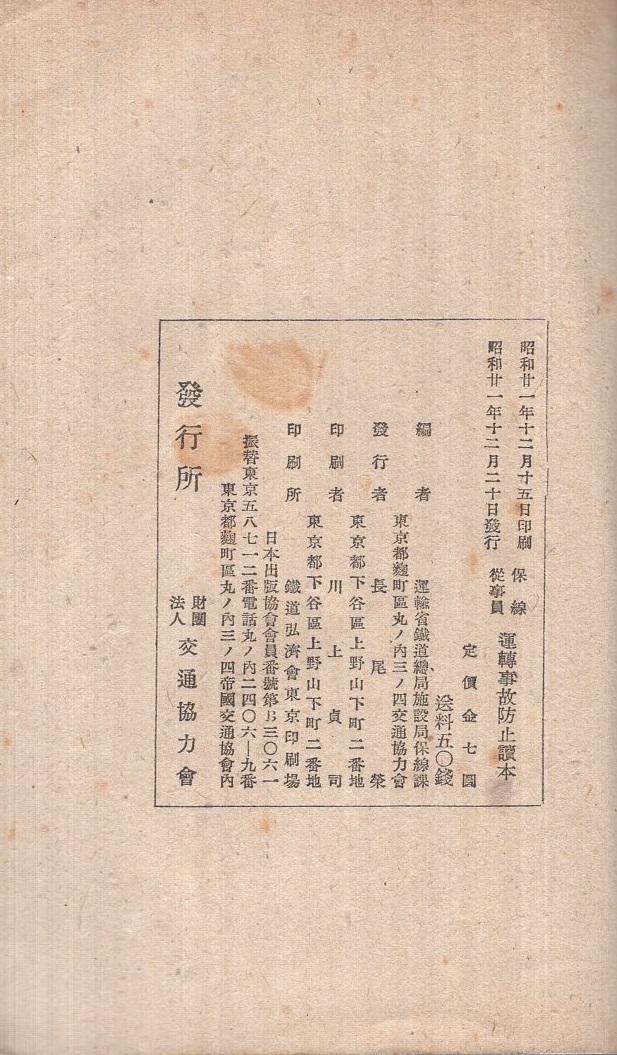 昭和廿一年十二月十五日印刷
昭和廿一年十二月二十日發行
保線
從事員
運轉事故防止讀本
定價金七圓
送料五〇錢
編者 運輸省鐵道總局施設局保線課
東京都麴町區丸ノ內三ノ四交通協力會
發行者 長尾榮
東京都下谷區上野山下町二番地
印刷者 川上貞司
東京都下谷區上野山下町二番地
印刷所 鐵道弘濟會東京印刷場
日本出版協會會員番號第B三〇六一
振替東京五八七一二番電話丸ノ內二四〇六―九番
東京都麴町區丸ノ內三ノ四帝國交通協會內
發行所
財團
法人
交通協力會